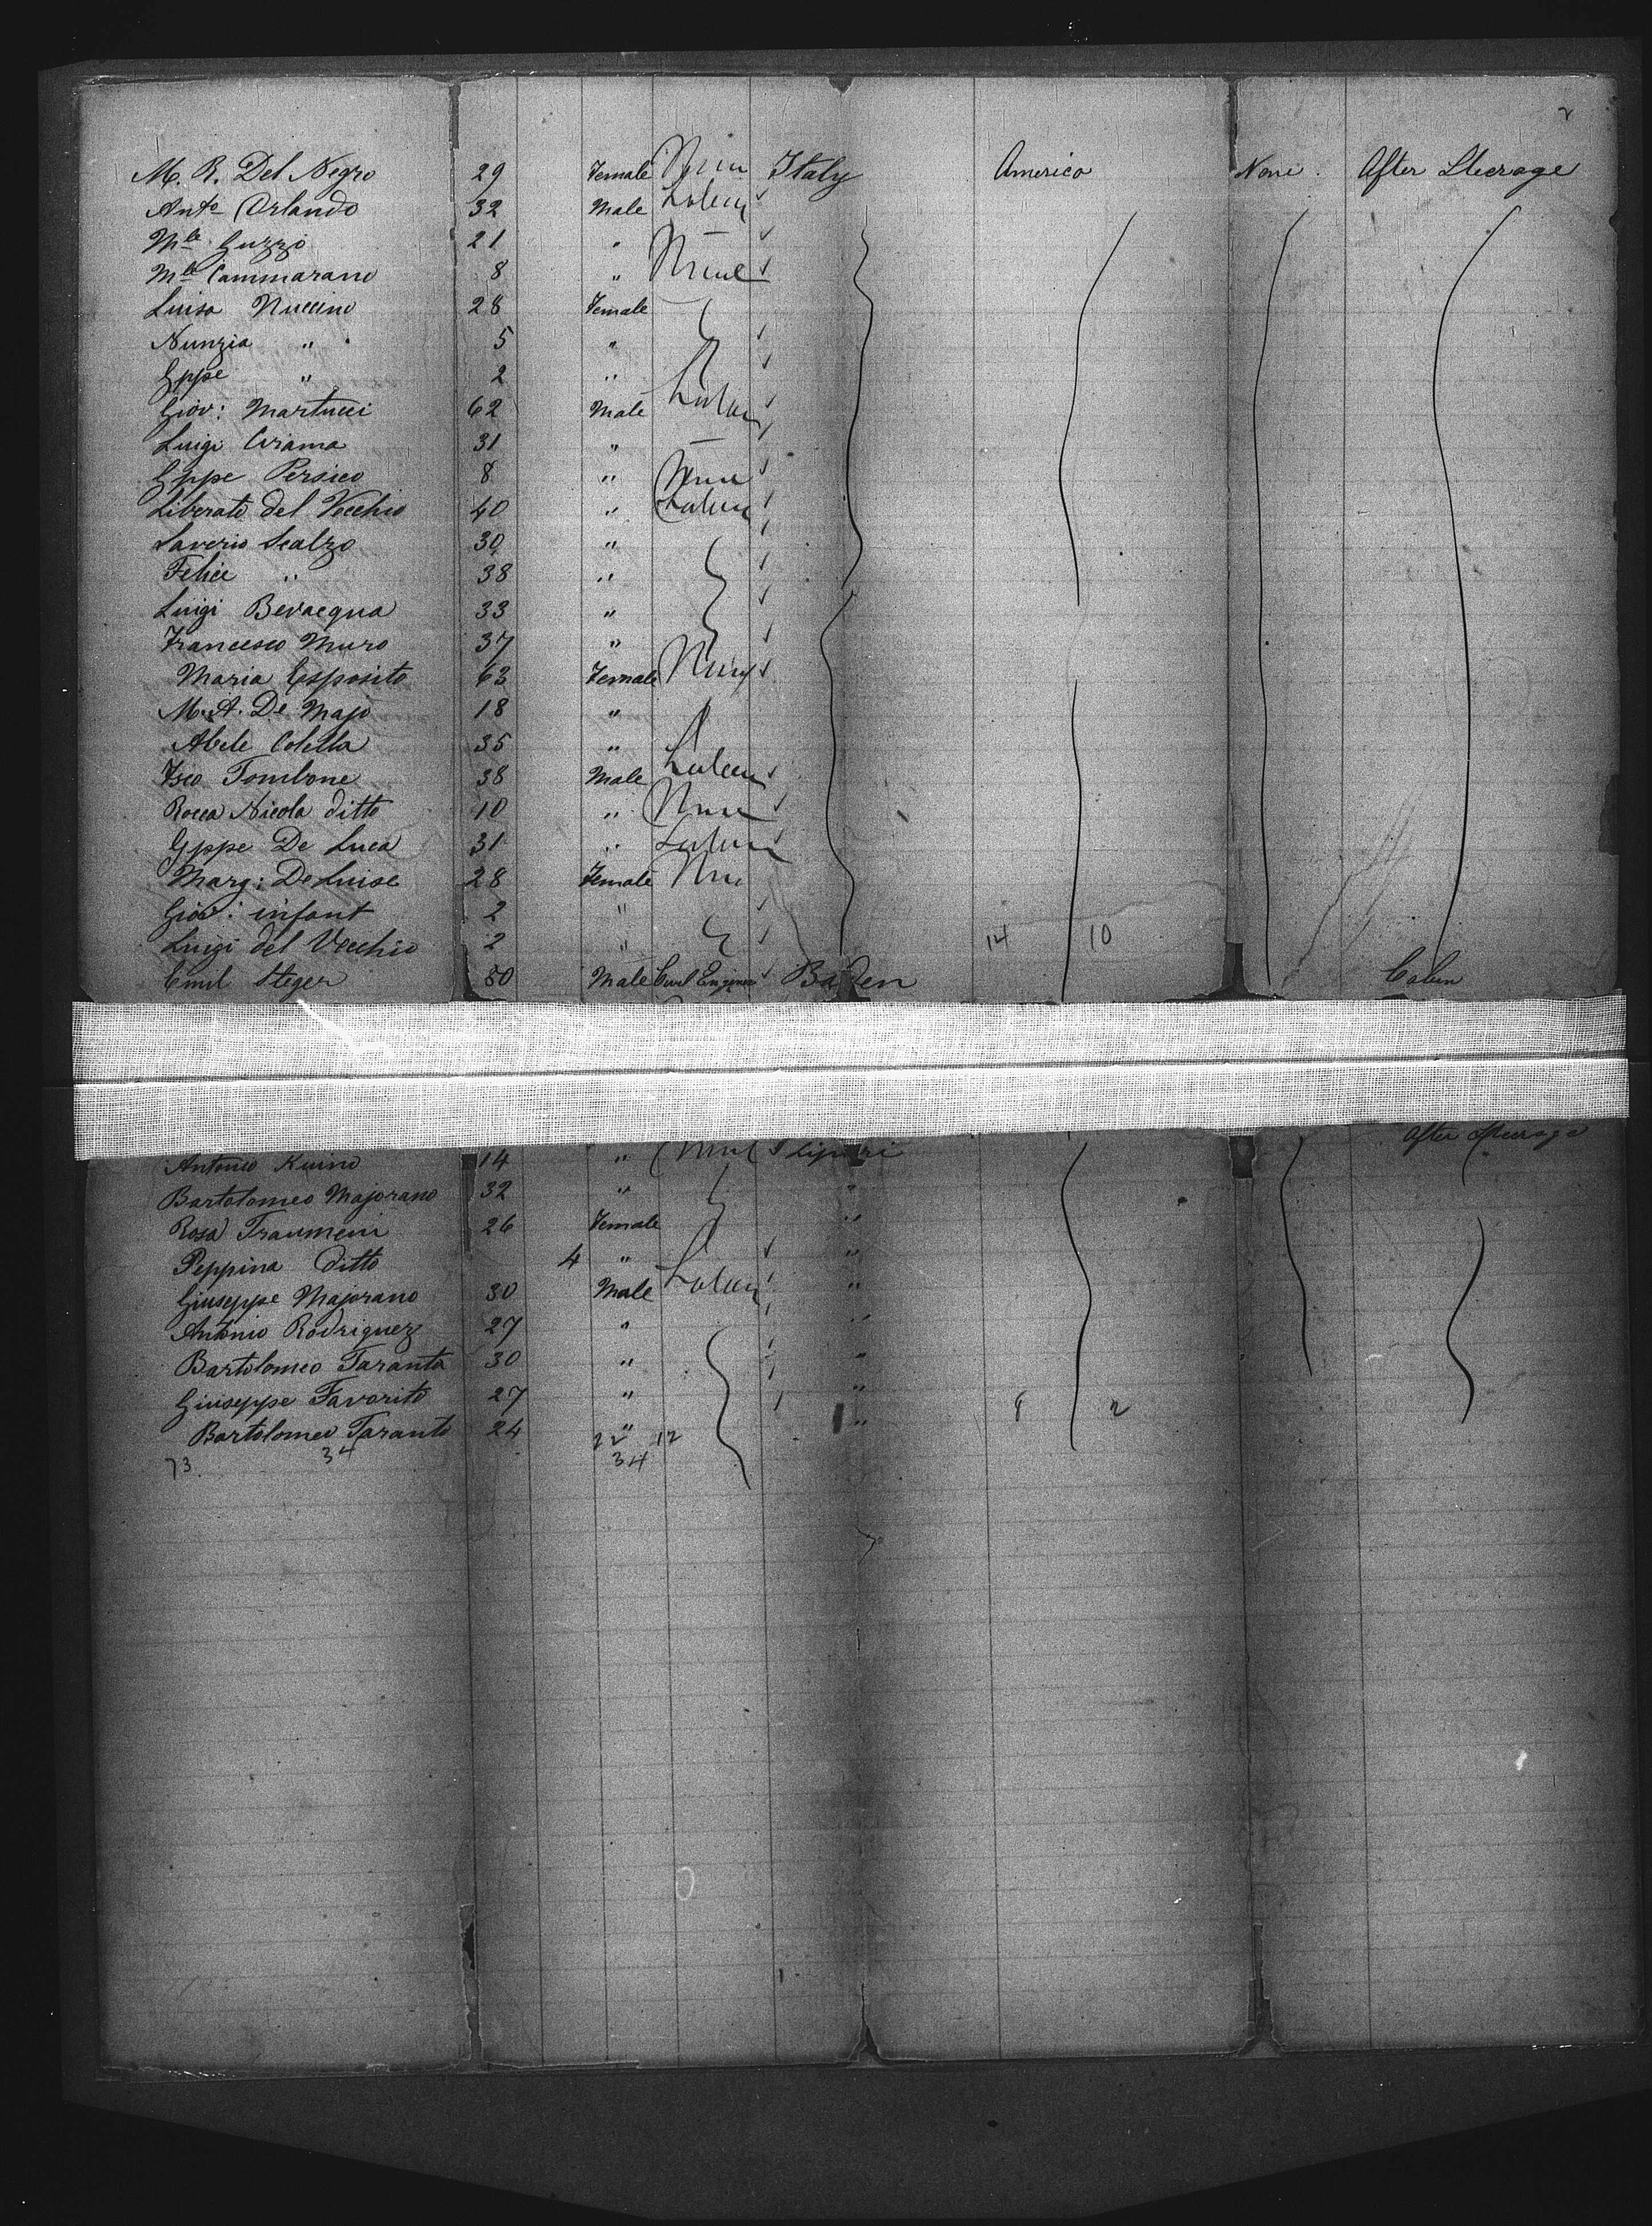 2
M. R. Del Negro 29 Female None Italy America None After Steerage
Anto Orlando 32 Male
Mle Guzzo 21 "
Mle Cammarano 8 " None
Luisa Nuccino 28 Female
Nunzia " 5 "
Gppe " 2 "
Giov: Martucci 62 Male
Luigi Cirama 31 "
Gppe Persico 8 " None
Liberato del Vecchio 40 "
Saverio Scalzo 30 "
Felice " 38 "
Luigi Bevacqua 33 "
Francesco Muro 37 "
Maria Esposito 63 Female None
M. A. De Majo 18 "
Abele Colella 35 "
Fsco Tombone 38 Male
Rocca Nicola ditto 10 " None
Gppe De Luca 31 "
Marg: De Luise 28 Female None
Giov: infant 2 "
Luigi del Vecchio 2 " 14 10
Emil Steger 50 Male Civil Engineer Baden Cabin
After Steerage
Antonio Kuino 14 " None Lipari
Bartolomeo Majorano 32 " "
Rosa Traumeni 26 Female "
Peppina Ditto 4 " "
Giuseppe Majorano 30 Male "
Antonio Rodriguez 27 " "
Bartolomeo Taranta 30 " "
Giuseppe Favorito 27 " " 8 2
Bartolomeo Taranto 24 " "
22 12
73. 34 34